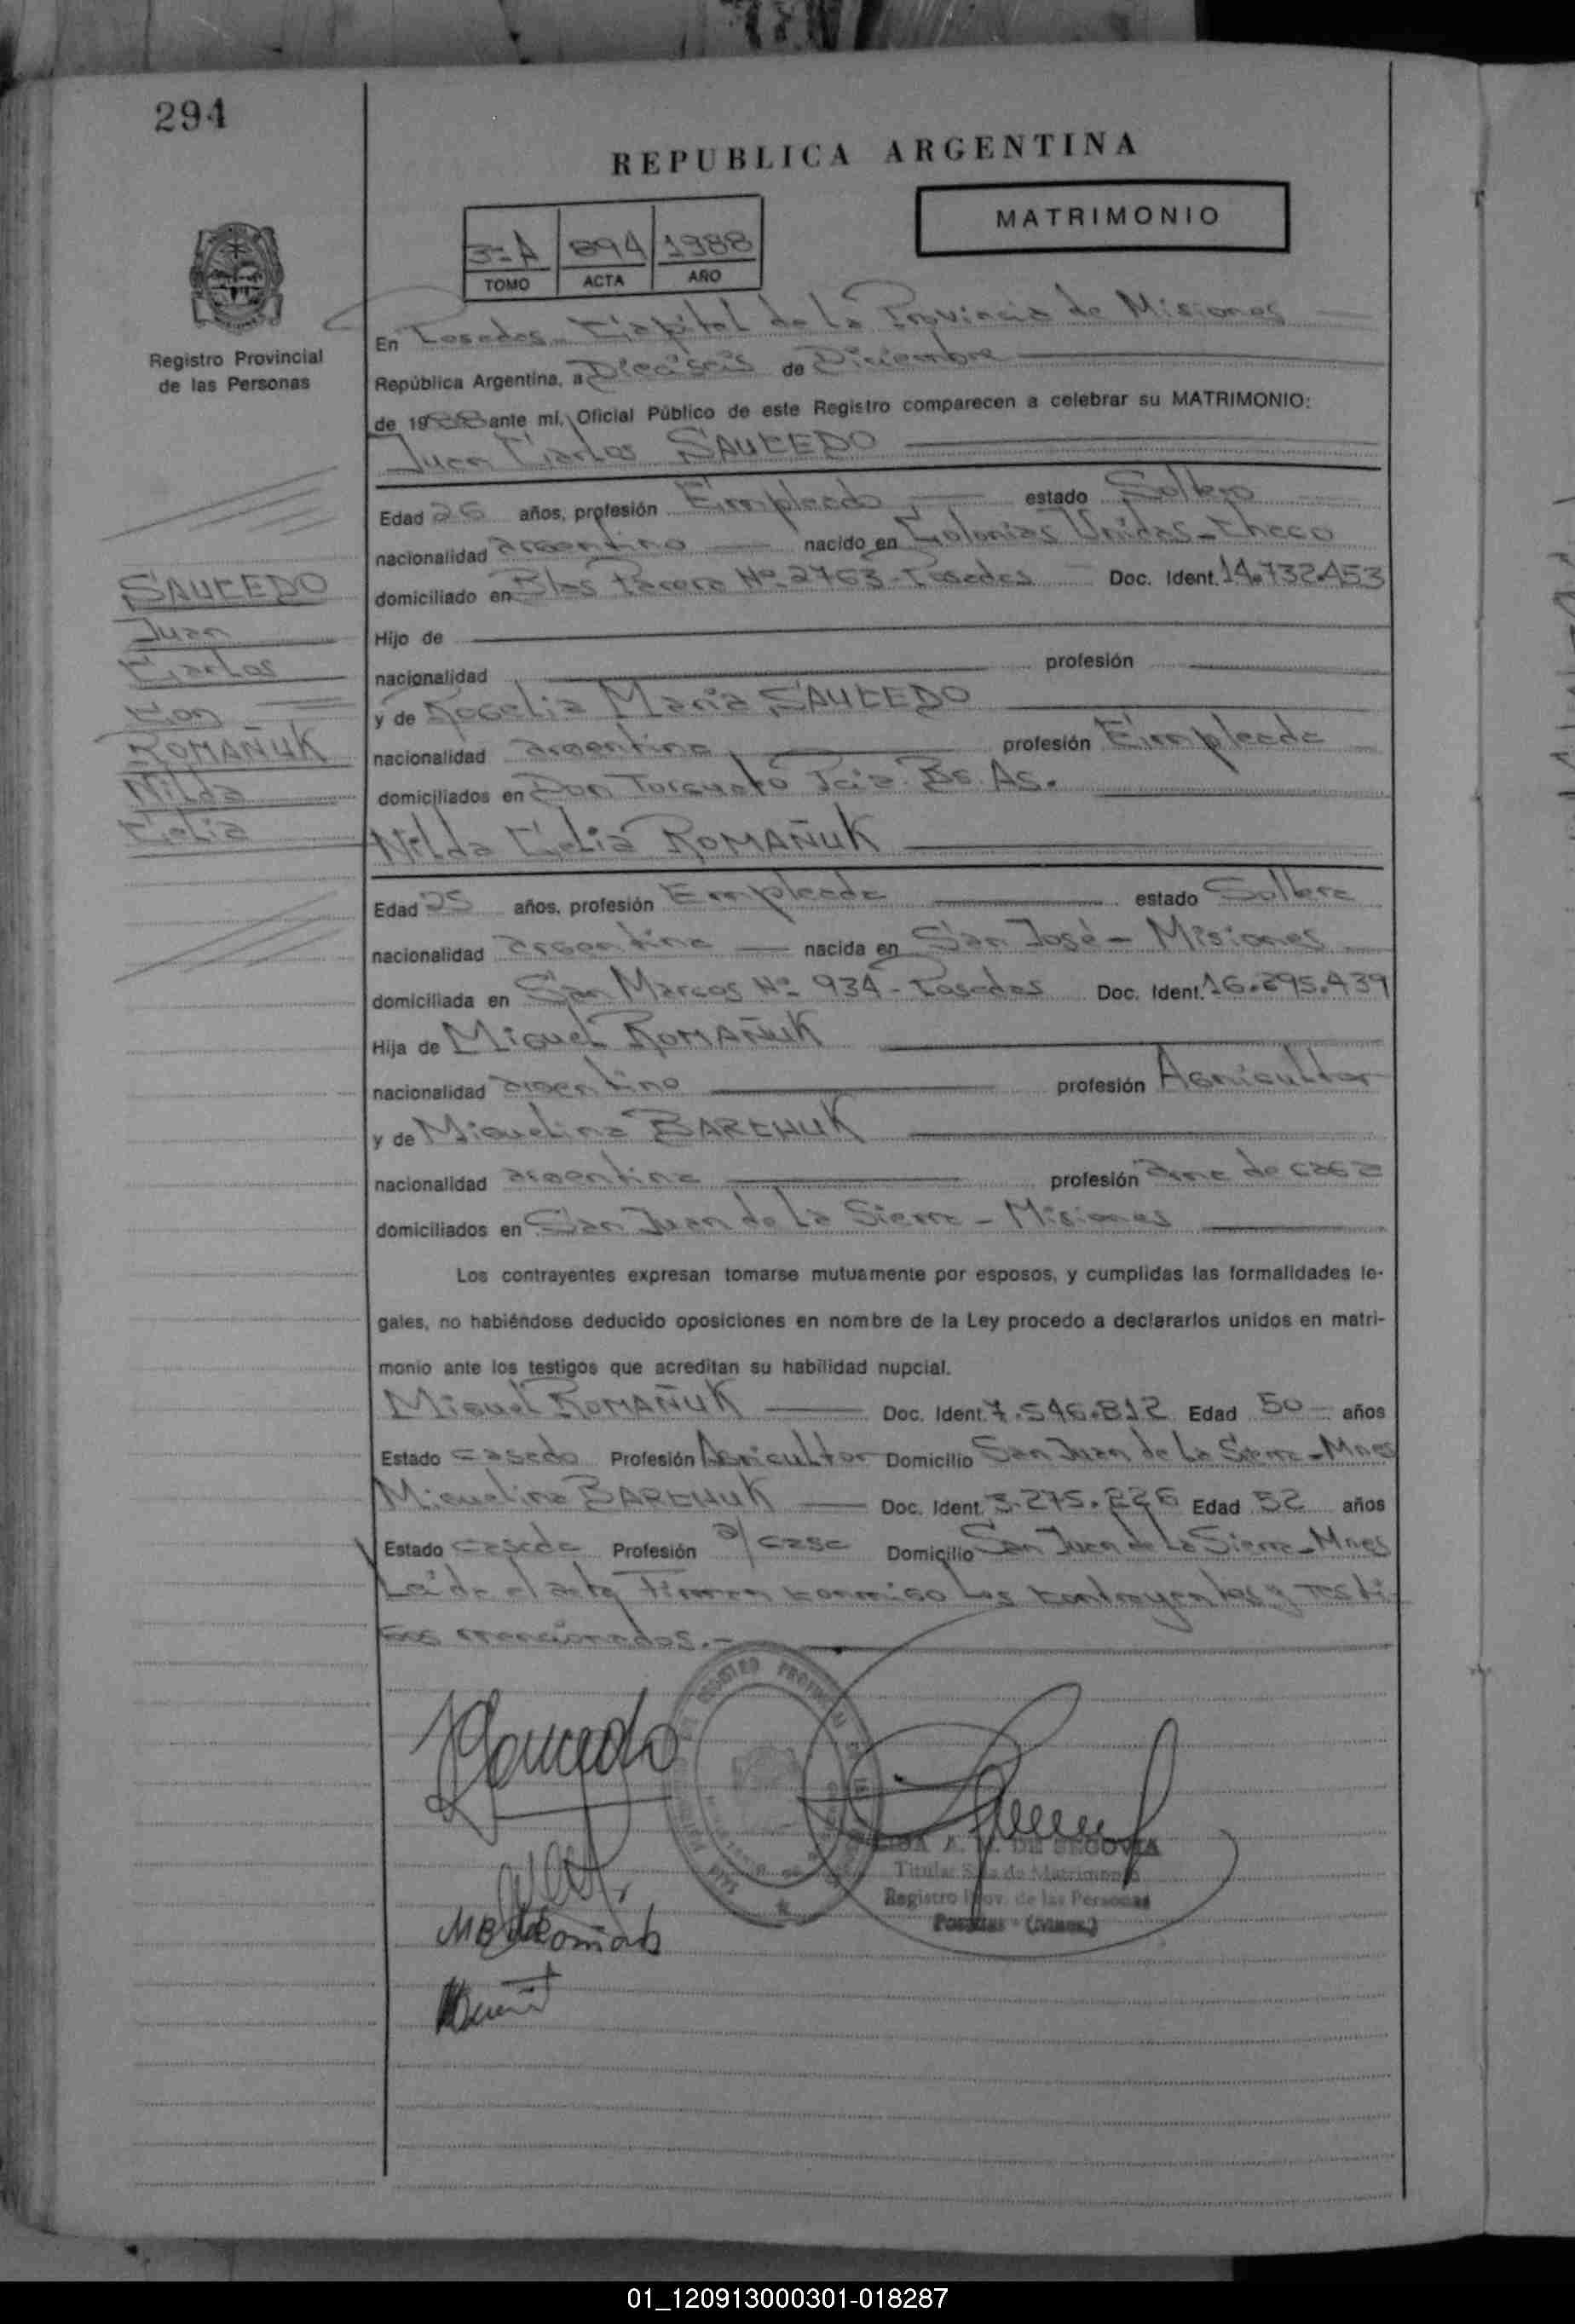 294
REPUBLICA ARGENTINA
MATRIMONIO
3=A 894 1988
TOMO ACTA AÑO
Registro Provincial
de las Personas
En Posadas - Capital de la Provincia de Misiones
República Argentina, a Dieciséis de Diciembre
de 1988 ante mí, Oficial Público de este Registro comparecen a celebrar su MATRIMONIO:
Juan Carlos SAUCEDO
Edad 26 años, profesión Empleado estado Soltero
nacionalidad argentino nacido en Colonias Unidas - Chaco
domiciliado en Blas Parera Nº 2763 - Posadas Doc. Ident. 14.732.453
Hijo de
nacionalidad profesión
y de Rogelia Maria SAUCEDO
nacionalidad argentina profesión Empleada
domiciliados en Don Torcuato Pcia. Bs. As.
Nilda Celia ROMAÑUK
SAUCEDO
Juan
Carlos
con
ROMAÑUK
Nilda
Celia
Edad 25 años, profesión Empleada estado Soltera
nacionalidad argentina nacida en San José - Misiones
domiciliada en San Marcos Nº 934 - Posadas Doc. Ident. 16.695.439
Hija de Miguel ROMAÑUK
nacionalidad argentino profesión Agricultor
y de Miguelina BARCHUK
nacionalidad argentina profesión ama de casa
domiciliados en San Juan de la Sierra - Misiones
Los contrayentes expresan tomarse mutuamente por esposos, y cumplidas las formalidades le-
gales, no habiéndose deducido oposiciones en nombre de la Ley procedo a declararlos unidos en matri-
monio ante los testigos que acreditan su habilidad nupcial.
Miguel ROMAÑUK Doc. Ident. 7.546.812 Edad 50 años
Estado casado Profesión Agricultor Domicilio San Juan de la Sierra - Mnes
Miguelina BARCHUK Doc. Ident. 3.275.226 Edad 52 años
Estado casada Profesión a/ casa Domicilio San Juan de la Sierra - Mnes
Leída el acta Firman conmigo los contrayentes y testi-
gos mencionados.-
Saucedo
REGISTRO
DE SEGOVIA
Titular Sala de Matrimonio
Registro Prov. de las Personas
Posadas - (Mnes.)
01_120913000301-018287